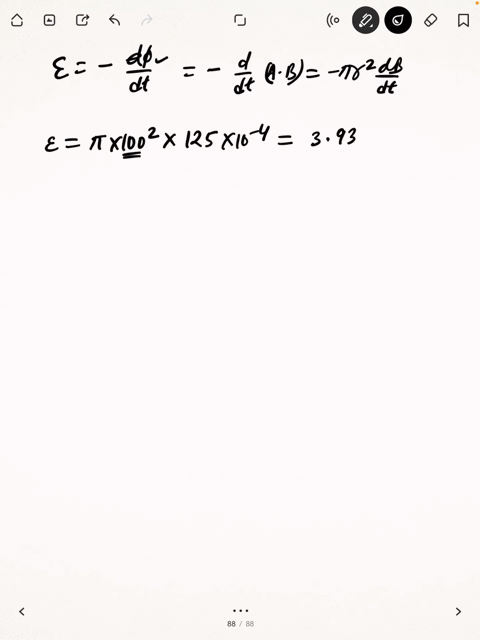 ε = - dφ/dt = - d/dt (A·B) = -πr² dB/dt
ε = π×100² × 125 ×10⁻⁴ = 3.93
88 / 88